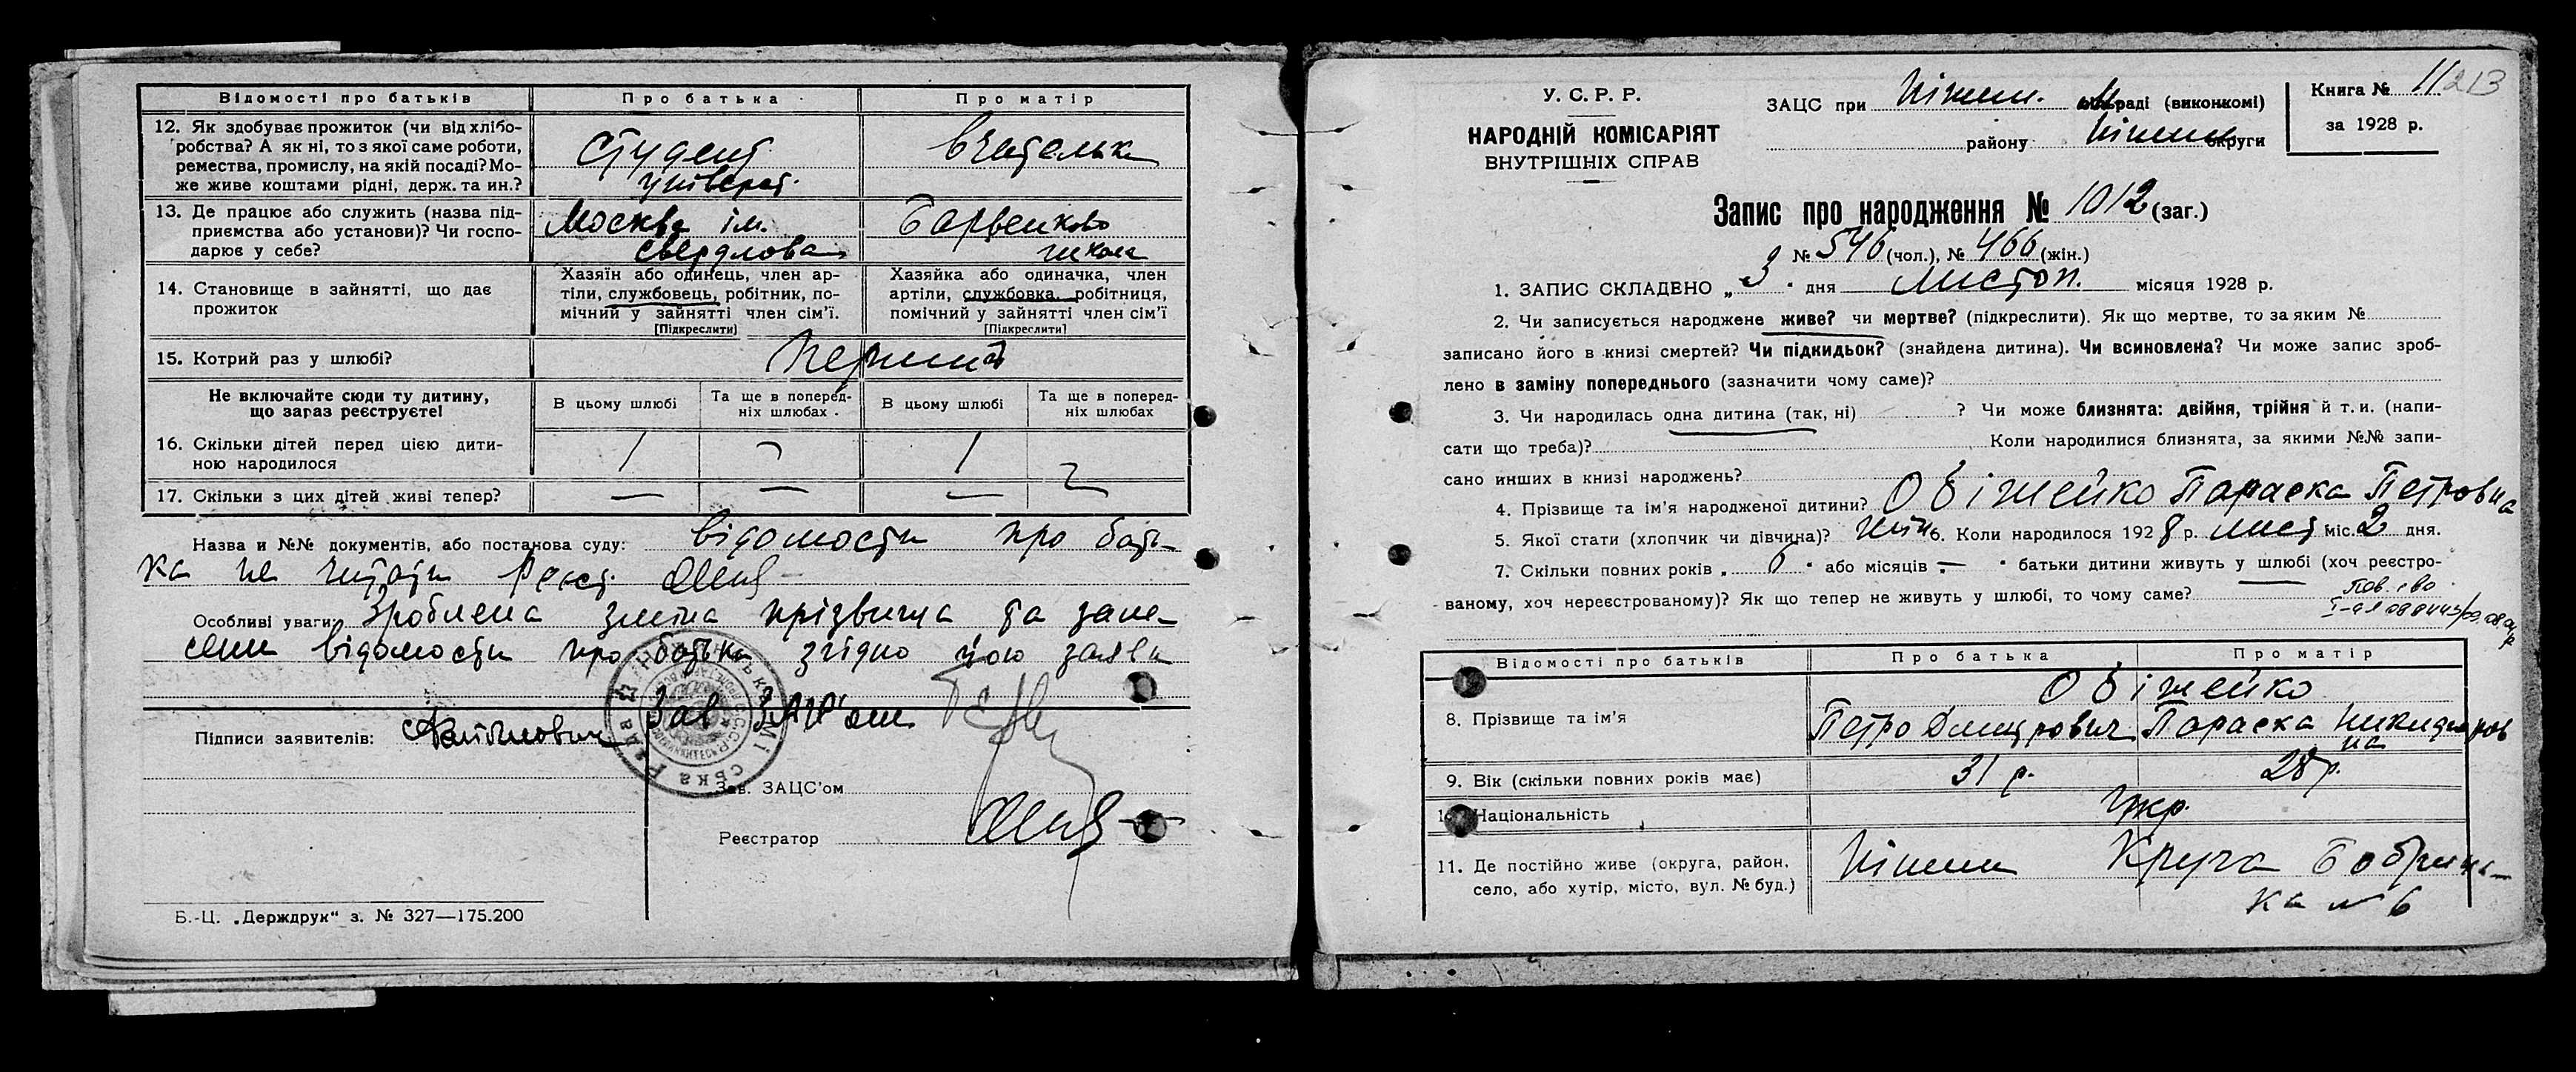 Відомості про батьків
Про батька
Про матір
12. Як здобуває прожиток (чи від хлібо-
робства? А як ні, то з якої саме роботи,
ремества, промислу, на якій посаді? Мо-
же живе коштами рідні, держ. та ин.?
Студент
універст.
вчителька
13. Де працює або служить (назва під-
приємства або установи)? Чи госпо-
дарює у себе?
Москва ім.
Свердлова
Барвенково
школа
14. Становище в зайнятті, що дає
прожиток
Хазяїн або одинець, член ар-
тіли, службовець, робітник, по-
мічний у зайнятті член сім'ї.
[Підкреслити]
Хазяйка або одиначка, член
артіли, службовка, робітниця,
помічний у зайнятті член сім'ї
[Підкреслити]
15. Котрий раз у шлюбі?
Перший
Не включайте сюди ту дитину,
що зараз реєструєте!
В цьому шлюбі
Та ще в поперед-
ніх шлюбах
В цьому шлюбі
Та ще в поперед-
ніх шлюбах
16. Скільки дітей перед цією дити-
ною народилося
1
1
17. Скільки з цих дітей живі тепер?
— — —
Назва и №№ документів, або постанова суду: відомости про бать-
ка не читати Реєст.
Особливі уваги: Зроблена зміна прізвища та зане-
сени відомости про батька згідно його заяви
Зав ЗАЦС'ом
Підписи заявителів:
Зав. ЗАЦС'ом
Реєстратор
Б.-Ц. „Держдрук“ з. № 327—175.200
У. С. Р. Р.
НАРОДНІЙ КОМІСАРІЯТ
ВНУТРІШНІХ СПРАВ
ЗАЦС при Ніжин. раді (виконкомі)
району Ніжин округи
Книга № 11
213
за 1928 р.
Запис про народження № 1012 (заг.)
№ 546 (чол.), № 466 (жін.)
1. ЗАПИС СКЛАДЕНО „ 3 " дня листоп. місяця 1928 р.
2. Чи записується народжене живе? чи мертве? (підкреслити). Як що мертве, то за яким №
записано його в книзі смертей? Чи підкидьок? (знайдена дитина). Чи всиновлена? Чи може запис зроб-
лено в заміну попереднього (зазначити чому саме)?
3. Чи народилась одна дитина (так, ні) ? Чи може близнята: двійня, трійня й т. и. (напи-
сати що треба)? Коли народилися близнята, за якими №№ запи-
сано инших в книзі народжень?
4. Прізвище та ім'я народженої дитини? Обіжейко Параска Петровна
5. Якої стати (хлопчик чи дівчина)? жін 6. Коли народилося 1928 р. лист міс. 2 дня.
7. Скільки повних років „ 6 " або місяців „ — " батьки дитини живуть у шлюбі (хоч реєстро-
ваному, хоч нереєстрованому)? Як що тепер не живуть у шлюбі, то чому саме?
Відомості про батьків
Про батька
Про матір
8. Прізвище та ім'я
Обіжейко
Петро Дмитрович
Параска Никифоров
на
9. Вік (скільки повних років має)
31 р.
28 р.
10. Національність
Укр.
11. Де постійно живе (округа, район,
село, або хутір, місто, вул. № буд.)
Ніжин Круча Бобриць-
ка № 6